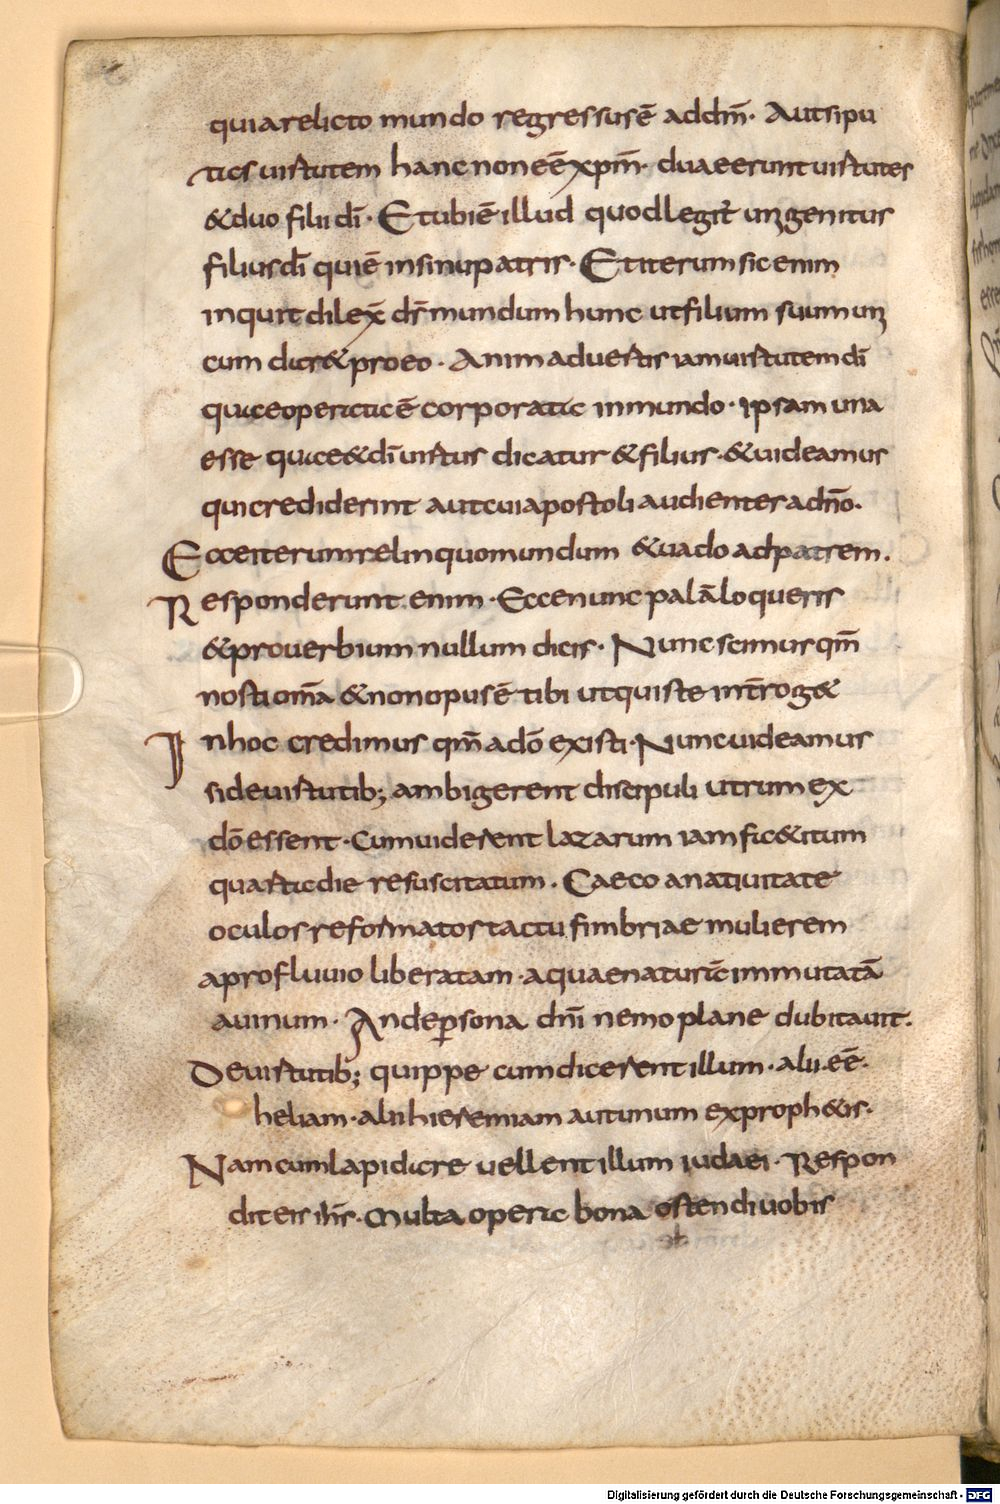 quia relicto mundo regressus ē ad dm̄. Aut si pu
tas uirtutem hanc non eē xp̄m. duae erunt uirtutes
& duo filii dī. Et ubi ē illud quod legit̄ unigenitus
filius dī qui ē in sinu patris. Et iterum sic enim
inquit dilex̄ ds̄ mundum hunc ut filium suum uni
cum dar& pro eo. Animaduertis iam uirtutem dī
quae operata ē corporata in mundo. Ipsam una
esse quae & dī uirtus dicatur & filius. & uideamus
qui crediderint aut cui apostoli audientes a dn̄o.
Ecce iterum relinquo mundum & uado ad patrem.
Responderunt enim. Ecce nunc palā loqueris
& prouerbium nullum dicis. Nunc scimus qm̄
nosti om̄a & non opus ē tibi ut quis te int̄rog&
In hoc credimus qm̄ a dō existi. Nunc uideamus
si de uirtutib; ambigerent discipuli utrum ex
dō essent. Cum uiderent lazarum iam fic&itum
quarta die resuscitatum. Caeco a natiuitate
oculos reformatos tactu fimbriae mulierem
a profluuio liberatam. aquae naturā immutatā
a uinum. An de p̱sona dn̄i nemo plane dubitauit.
De uirtutib; quippe cum dicerent illum. alii. eē.
heliam. alii hieremiam aut unum ex proph&is.
Nam cum lapidare uellent illum iudaei. Respon
dit eis ih̄s. Multa opera bona ostendi uobis
Digitalisierung gefördert durch die Deutsche Forschungsgemeinschaft - DFG